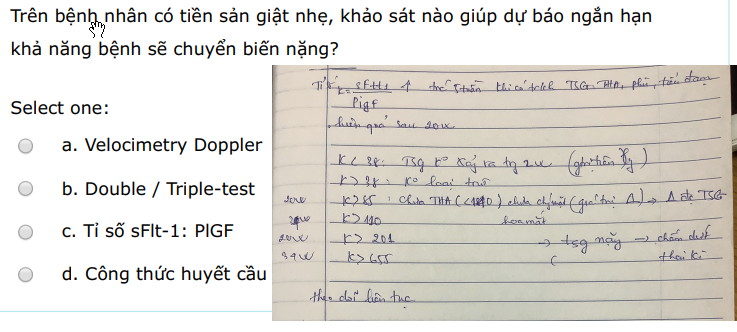 Trên bệnh nhân có tiền sản giật nhẹ, khảo sát nào giúp dự báo ngắn hạn
khả năng bệnh sẽ chuyển biến nặng?
Select one:
a. Velocimetry Doppler
b. Double / Triple-test
c. Tỉ số sFlt-1: PlGF
d. Công thức huyết cầu
Tỉ số K = sFlt1 ↑ trước 5 tuần khi có TSG. THA, phù, tiểu đạm
Pigf
hiệu quả sau 20w
K < 38: TSG ko xảy ra tg 2w
K > 38: ko loại trừ
K > 85: chưa THA
K > 110
K > 201 → tsg nặng → chấm dứt
thai kì
34w K > 655
theo dõi liên tục